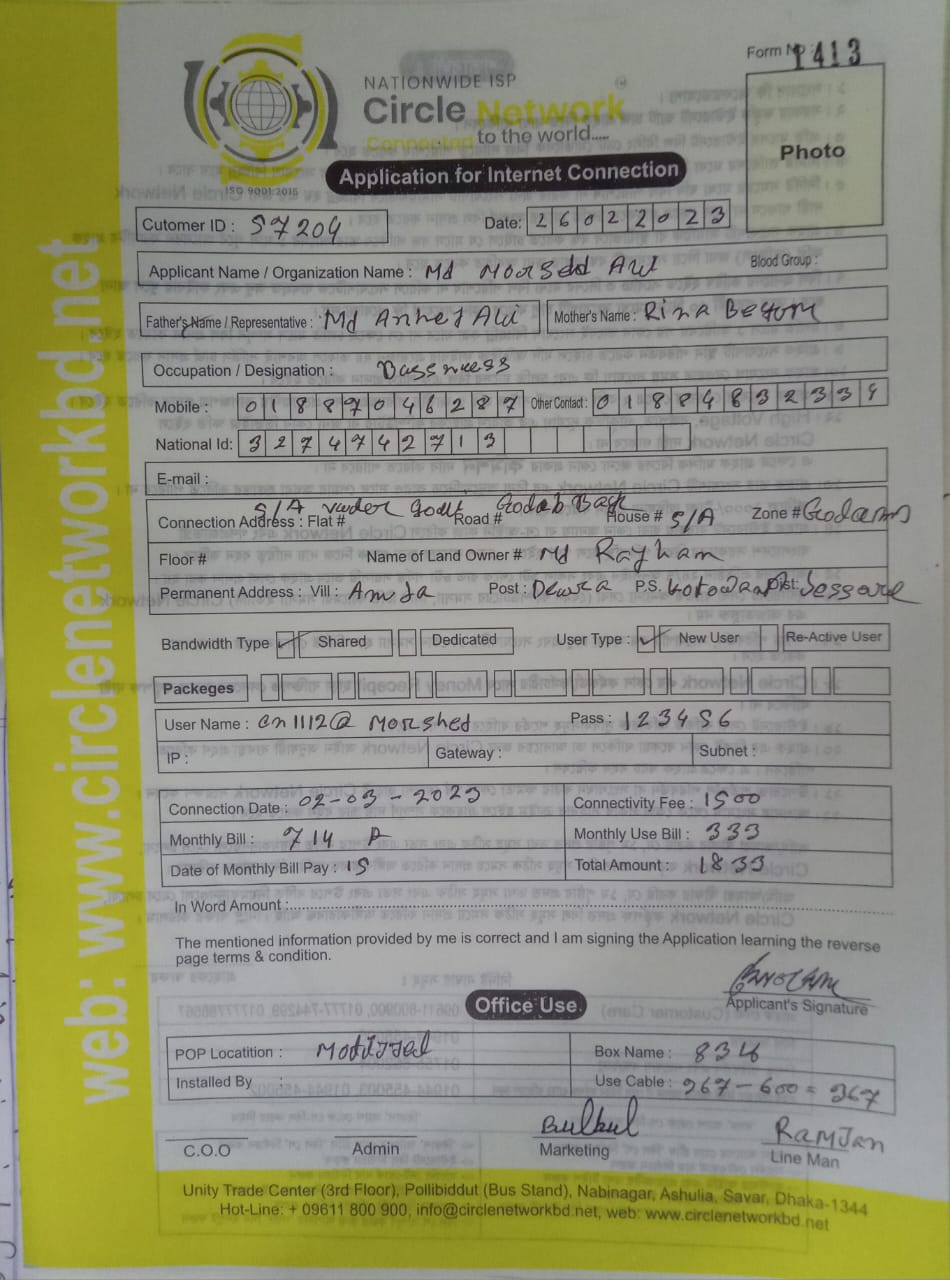 Form No : 1413
NATIONWIDE ISP
Circle Network
Connected to the world.....
ISO 9001:2015
Application for Internet Connection
Photo
web: www.circlenetworkbd.net
Cutomer ID : 57204 Date: 26022023
Applicant Name / Organization Name : Md Morsed Ali Blood Group :
Father's Name / Representative : Md Ali Mother's Name : Rina Begom
Occupation / Designation : Bassness
Mobile : 01887046287 Other Contact : 01884832334
National Id: 3274742713
E-mail :
Connection Address : Flat # 5/A Road # House # 5/A Zone #
Floor # Name of Land Owner # Md Rayhan
Permanent Address : Vill : Post : P.S. Dist: Jessore
Bandwidth Type ✓ Shared Dedicated User Type : ✓ New User Re-Active User
Packeges
User Name : cn1112@ Morshed Pass : 123456
IP : Gateway : Subnet :
Connection Date : 02-03-2023 Connectivity Fee : 1500
Monthly Bill : 714 Monthly Use Bill : 333
Date of Monthly Bill Pay : 15 Total Amount : 1833
In Word Amount :
The mentioned information provided by me is correct and I am signing the Application learning the reverse
page terms & condition.
Applicant's Signature
Office Use.
POP Locatition : Box Name :
Installed By : Use Cable : 967-600 = 367
Bulbul RAMJan
C.O.O Admin Marketing Line Man
Unity Trade Center (3rd Floor), Pollibiddut (Bus Stand), Nabinagar, Ashulia, Savar, Dhaka-1344
Hot-Line: + 09611 800 900, info@circlenetworkbd.net, web: www.circlenetworkbd.net